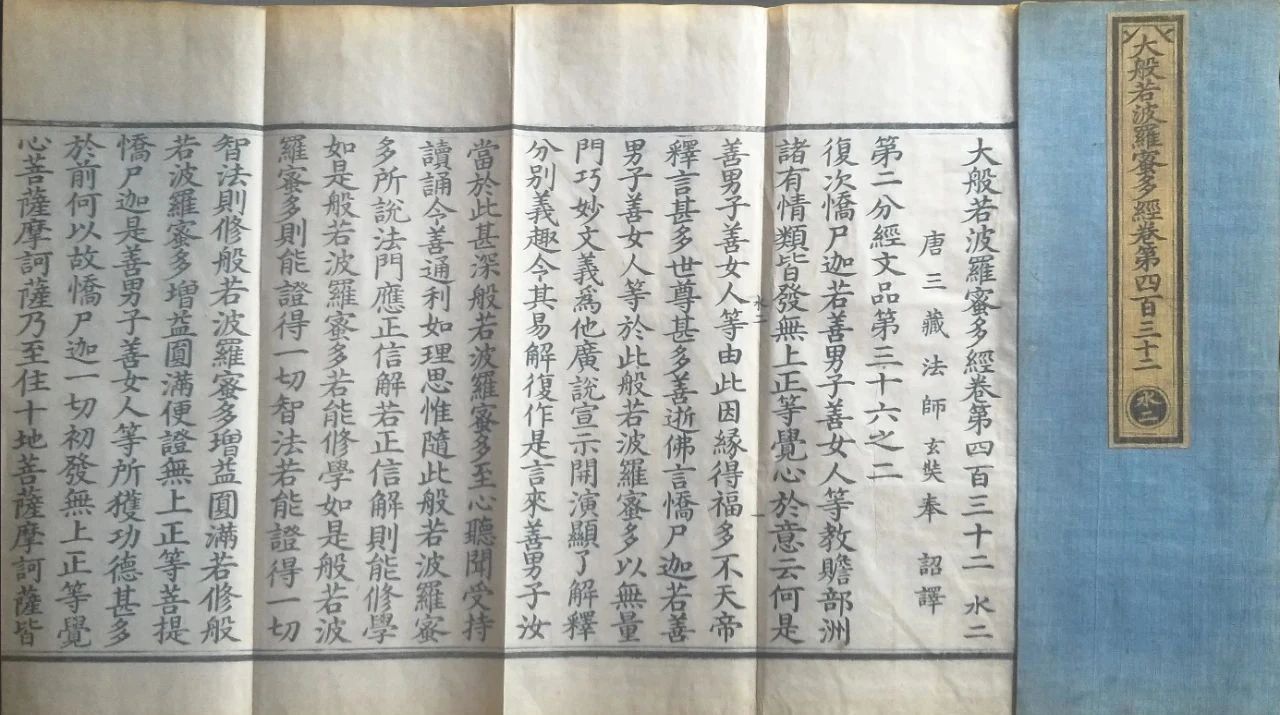 大般若波羅蜜多經卷第四百三十二
水二
大般若波羅蜜多經卷第四百三十二 水二
唐三藏法師玄奘奉 詔譯
第二分經文品第三十六之二
復次憍尸迦若善男子善女人等教贍部洲
諸有情類皆發無上正等覺心於意云何是
水二 一
善男子善女人等由此因緣得福多不天帝
釋言甚多世尊甚多善逝佛言憍尸迦若善
男子善女人等於此般若波羅蜜多以無量
門巧妙文義為他廣說宣示開演顯了解釋
分別義趣令其易解復作是言來善男子汝
當於此甚深般若波羅蜜多至心聽聞受持
讀誦令善通利如理思惟隨此般若波羅蜜
多所說法門應正信解若正信解則能修學
如是般若波羅蜜多若能修學如是般若波
羅蜜多則能證得一切智法若能證得一切
智法則修般若波羅蜜多增益圓滿若修般
若波羅蜜多增益圓滿便證無上正等菩提
憍尸迦是善男子善女人等所獲功德甚多
於前何以故憍尸迦一切初發無上正等覺
心菩薩摩訶薩乃至住十地菩薩摩訶薩皆